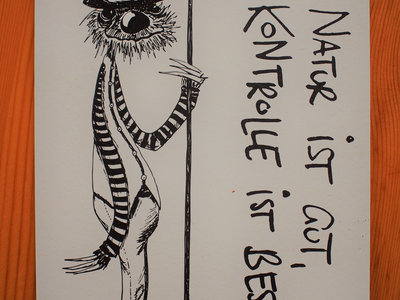 NATUR IST GUT,
KONTROLLE IST BES